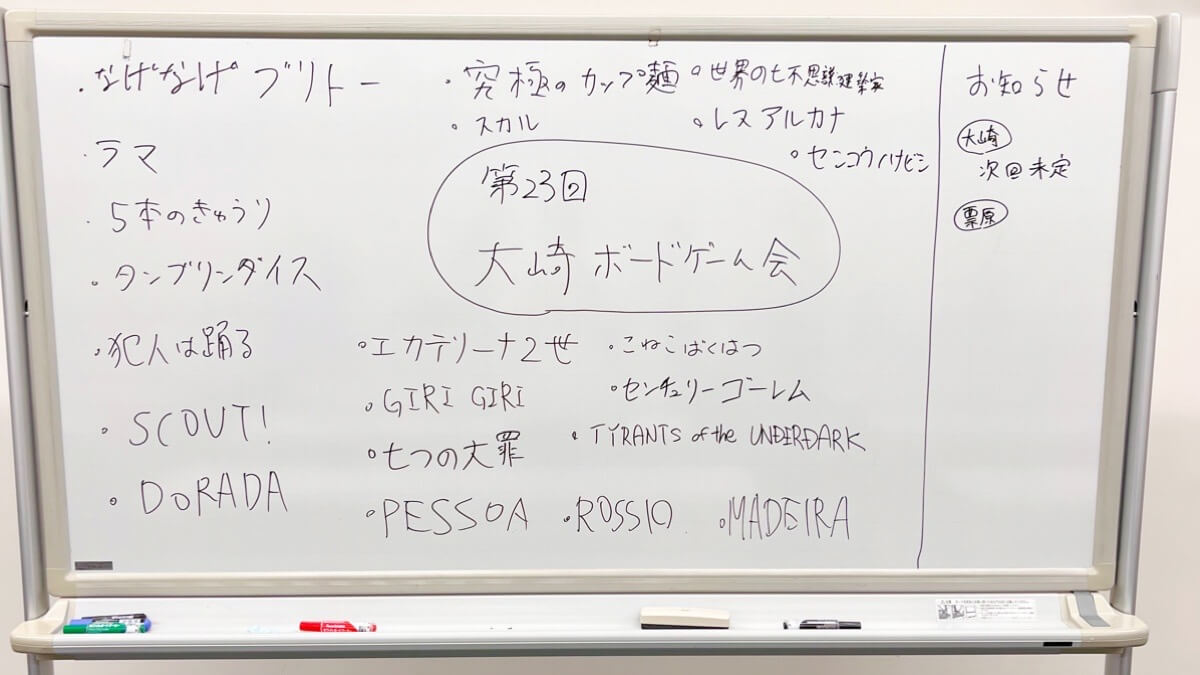 ・なげなげブリトー
・ラマ
・5本のきゅうり
・タンブリンダイス
・犯人は踊る
・SCOUT!
・DORADA
・究極のカップ麺
・世界の七不思議建築家
・スカル
・レスアルカナ
・センコウハナビシ
第23回
大崎ボードゲーム会
・エカテリーナ2世
・こねこばくはつ
・GIRI GIRI
・センチュリーゴーレム
・七つの大罪
・TYRANTS of the UNDERDARK
・PESSOA
・ROSSIO
・MADEIRA
お知らせ
大崎
次回未定
栗原